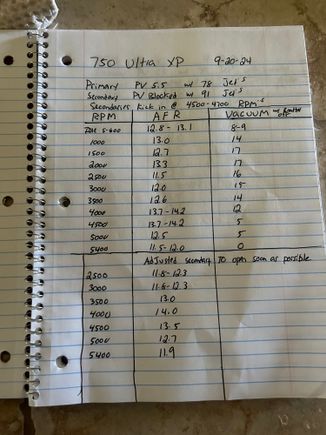 750 Ultra XP 9-20-24
Primary PV 5.5 w/ 78 Jet's
Secondary PV Blocked w/ 91 Jet's
Secondaries Kick in @ 4500-4700 RPM's
RPM AFR VACUUM OFF
12.8 - 13.1 8-9
1000 13.0 14
1500 12.7 17
2000 13.3 17
2500 11.5 16
3000 12.0 15
3500 12.6 14
4000 13.7-14.2 12
4500 13.7-14.2 5
5000 12.5 5
5400 11.5-12.0 0
Adjusted secondary to open soon as possible
2500 11.8-12.3
3000 11.8-12.3
3500 13.0
4000 14.0
4500 13.5
5000 12.7
5400 11.9